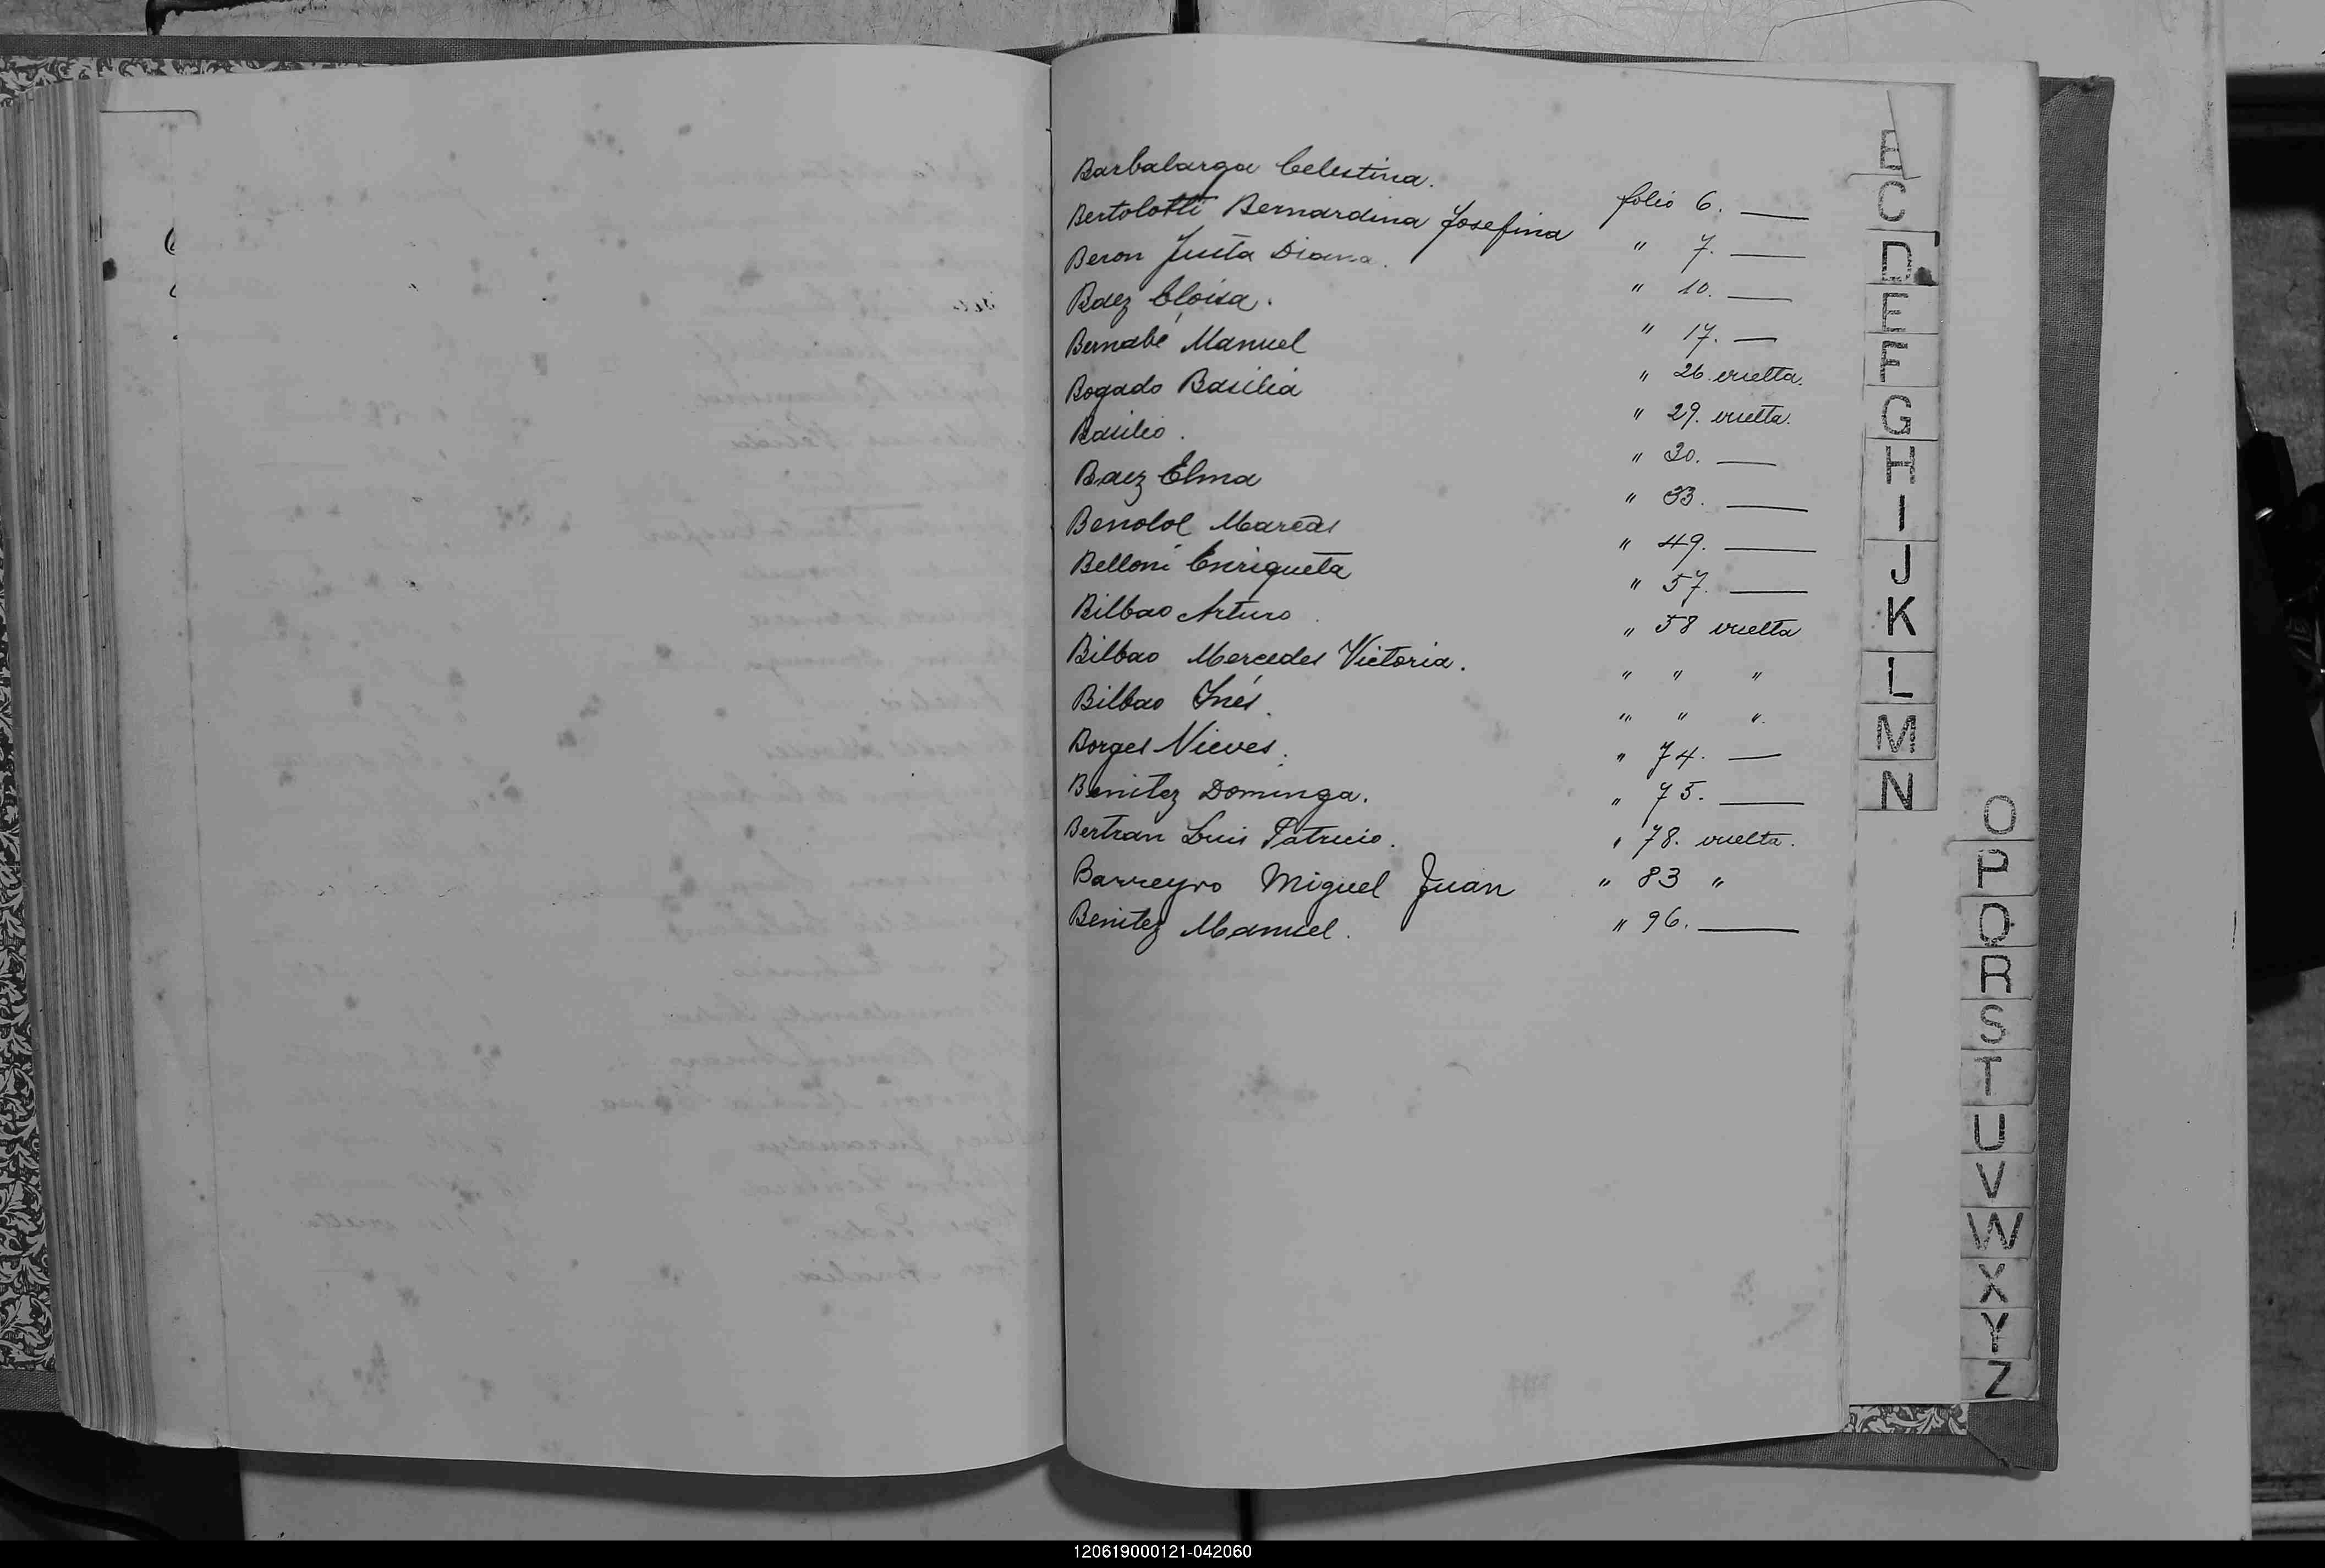 Barbalarga Celestina. folio 6. —
Bertolotti Bernardina Josefina " 7. —
Beron Justa Diana. " 10. —
Baez Eloisa. " 17. —
Bernabé Manuel " 26 vuelta.
Bogado Basilia " 29. vuelta.
Basilio. " 30. —
Baez Elma " 33. —
Benolol Marcos " 49. —
Belloni Enriqueta " 57. —
Bilbao Arturo " 58 vuelta
Bilbao Mercedes Victoria. " " "
Bilbao Inés. " " ".
Borges Nieves. " 74. —
Benitez Dominga. " 75. —
Bertran Luis Patricio. " 78. vuelta.
Barreyro Miguel Juan " 83 "
Benitez Manuel. " 96. —
B
C
D
E
F
G
H
I
J
K
L
M
N
O
P
Q
R
S
T
U
V
W
X
Y
Z
120619000121-042060